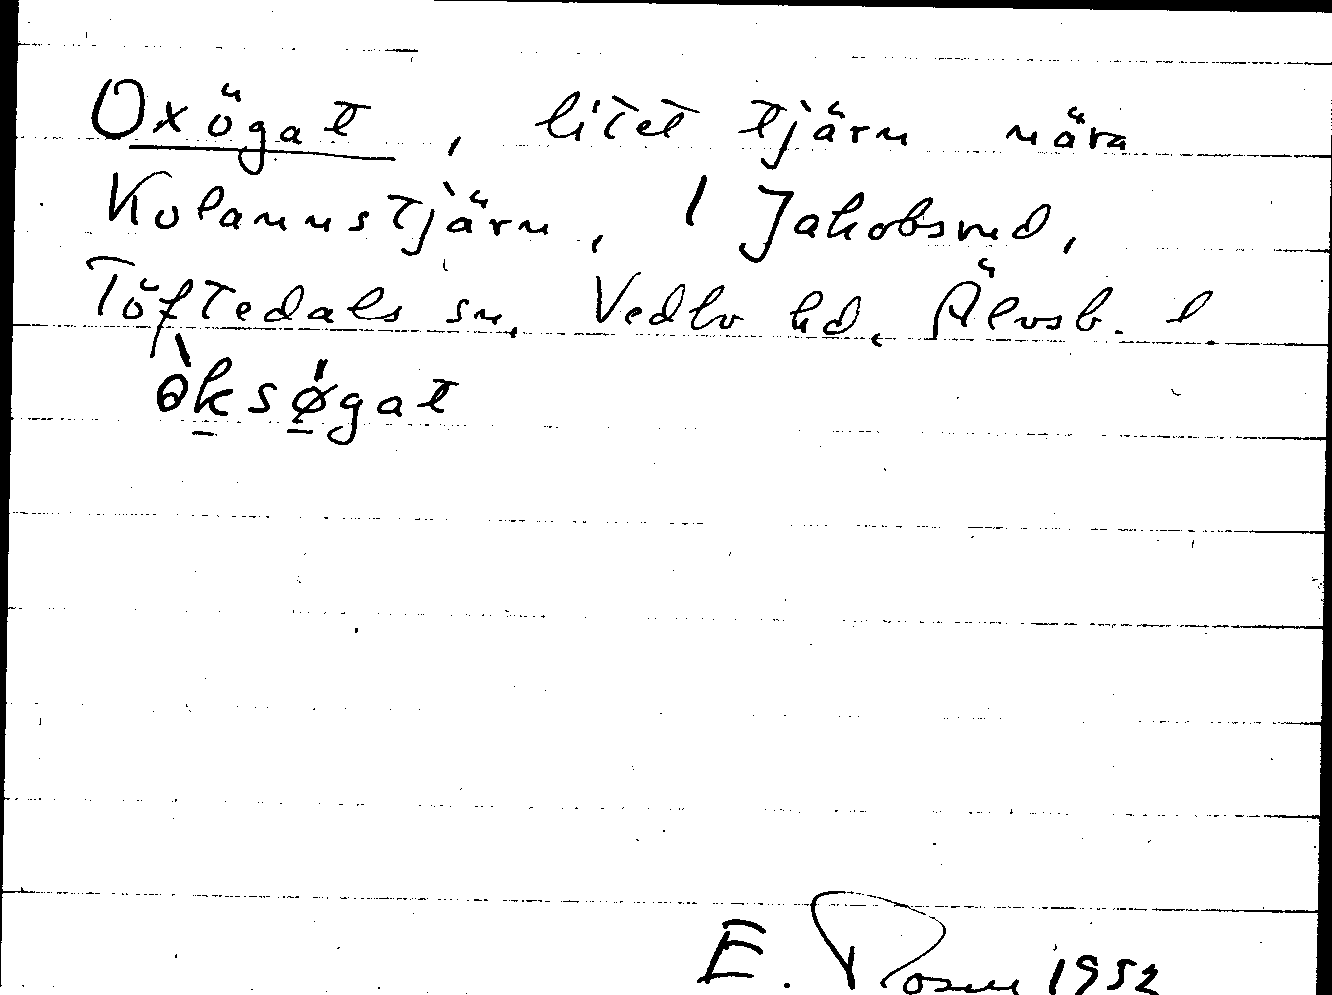 Oxögat, litet tjärn nära
Kolamustjärn, 1 Jakobsrud,
Töftedals sn, Vedbo hd, Älvsb. l.
òksø̀gat
E. Rosen 1952